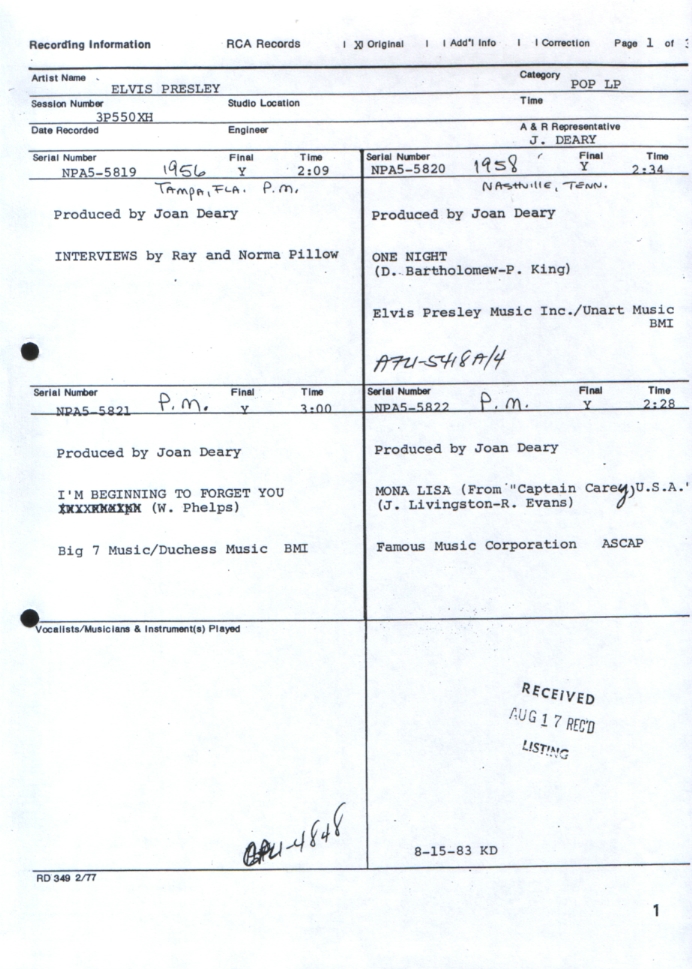 Recording Information RCA Records [ X] Original [ ] Add'l Info [ ] Correction Page 1 of 3
Artist Name Category
ELVIS PRESLEY POP LP
Session Number Studio Location Time
3P550XH
Date Recorded Engineer A & R Representative
J. DEARY
Serial Number Final Time
NPA5-5819 1956 Y 2:09
TAMPA, FLA. P.M.
Produced by Joan Deary
INTERVIEWS by Ray and Norma Pillow
Serial Number Final Time
NPA5-5820 1958 Y 2:34
NASHVILLE, TENN.
Produced by Joan Deary
ONE NIGHT
(D. Bartholomew-P. King)
Elvis Presley Music Inc./Unart Music
BMI
A7U-5418A/4
Serial Number Final Time
NPA5-5821 P.M. Y 3:00
Produced by Joan Deary
I'M BEGINNING TO FORGET YOU
(W. Phelps)
Big 7 Music/Duchess Music BMI
Serial Number Final Time
NPA5-5822 P.M. Y 2:28
Produced by Joan Deary
MONA LISA (From "Captain Carey, U.S.A."
(J. Livingston-R. Evans)
Famous Music Corporation ASCAP
Vocalists/Musicians & Instrument(s) Played
RECEIVED
AUG 17 REC'D
LISTING
8-15-83 KD
RD 349 2/77
1